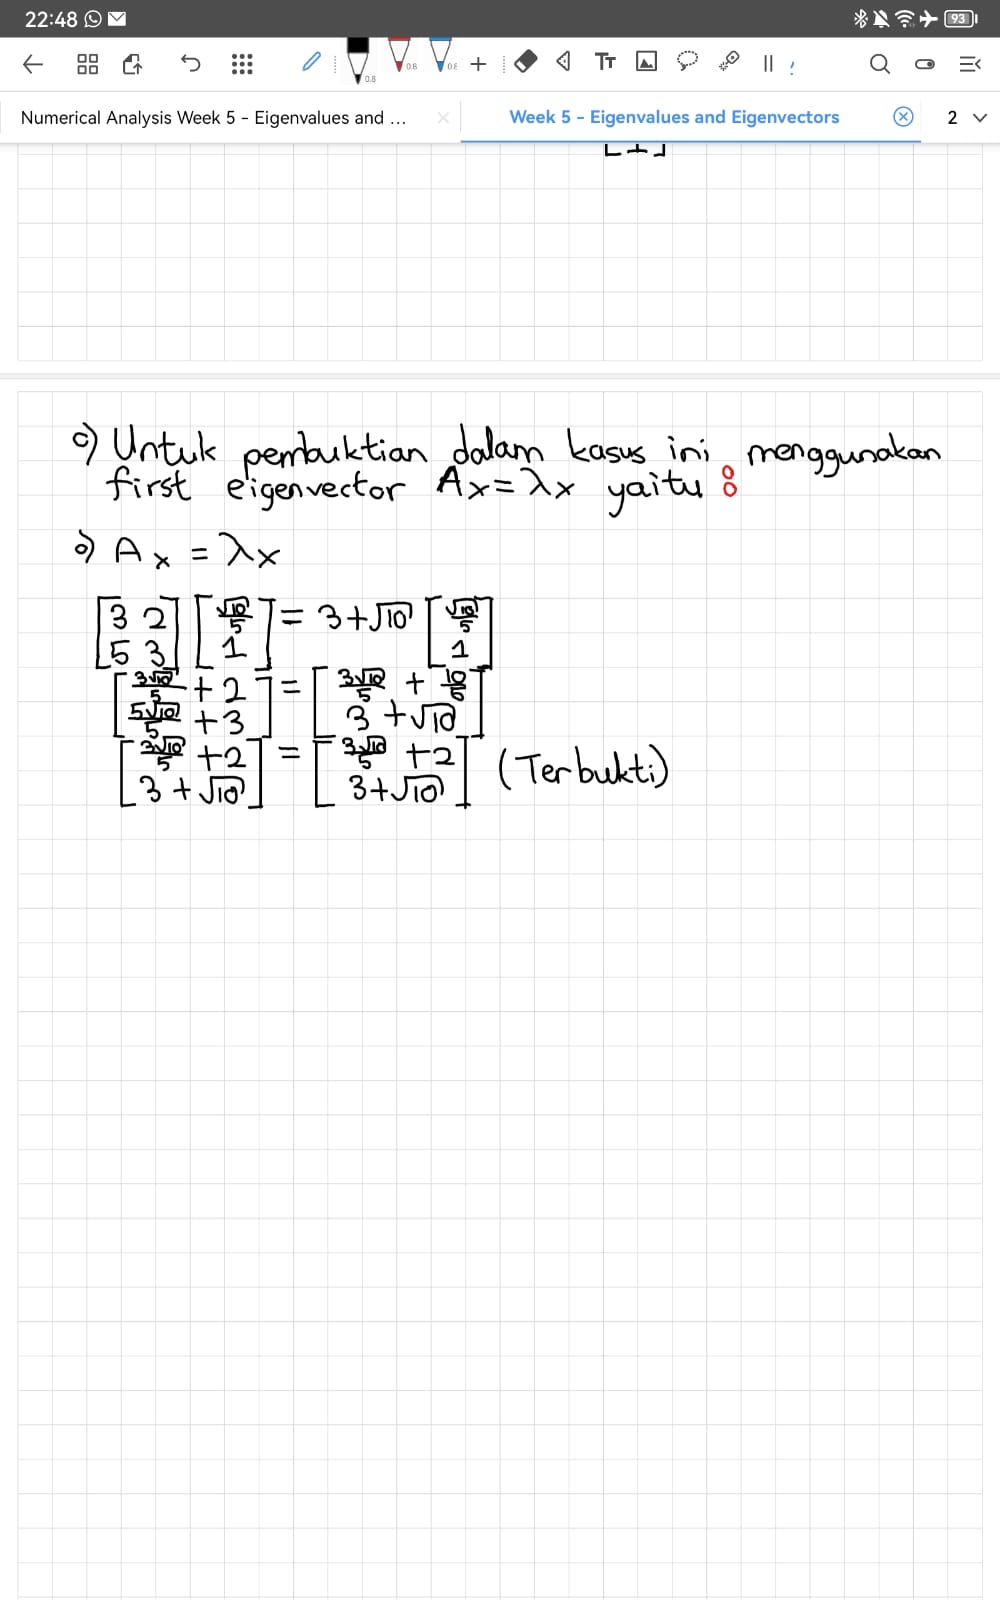 22:48 93
0.8 0.8 0.8 TT
Numerical Analysis Week 5 - Eigenvalues and ... Week 5 - Eigenvalues and Eigenvectors 2
[1]
c) Untuk pembuktian dalam kasus ini menggunakan
first eigenvector Ax=λx yaitu :
o) Ax = λx
[3 2; 5 3] [√10/5; 1] = 3+√10 [√10/5; 1]
[3√10/5 + 2; 5√10/5 + 3] = [3√10/5 + 10/5; 3 + √10]
[3√10/5 + 2; 3 + √10] = [3√10/5 + 2; 3+√10] (Terbukti)